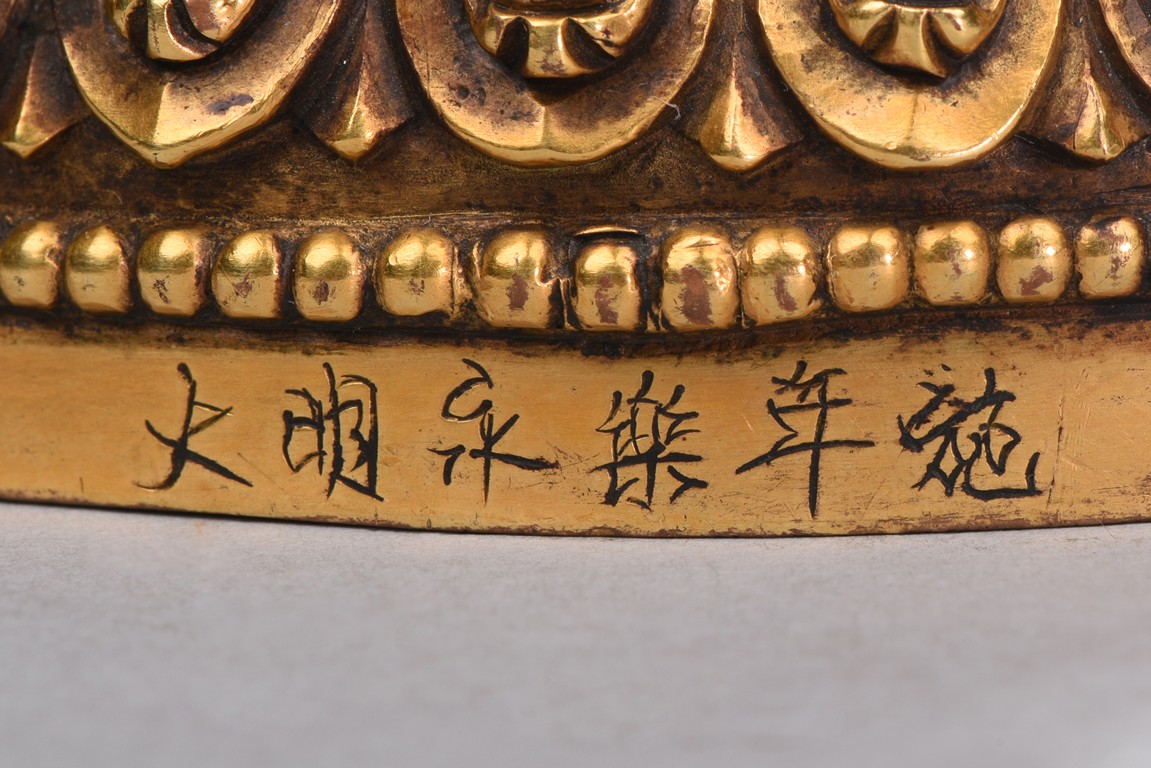 大明永樂年施